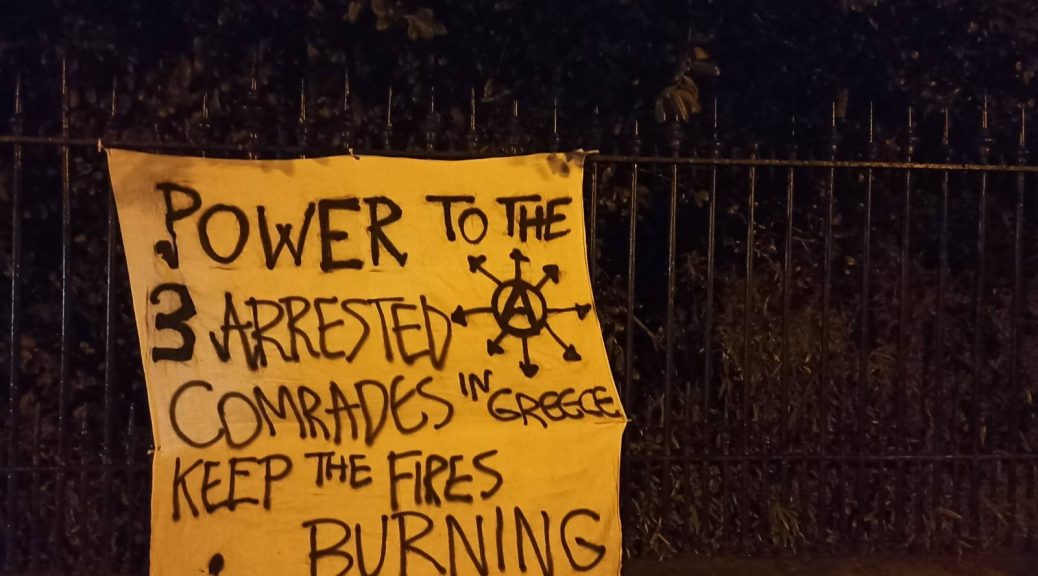 POWER TO THE
3 ARRESTED A
COMRADES IN GREECE
KEEP THE FIRES
BURNING